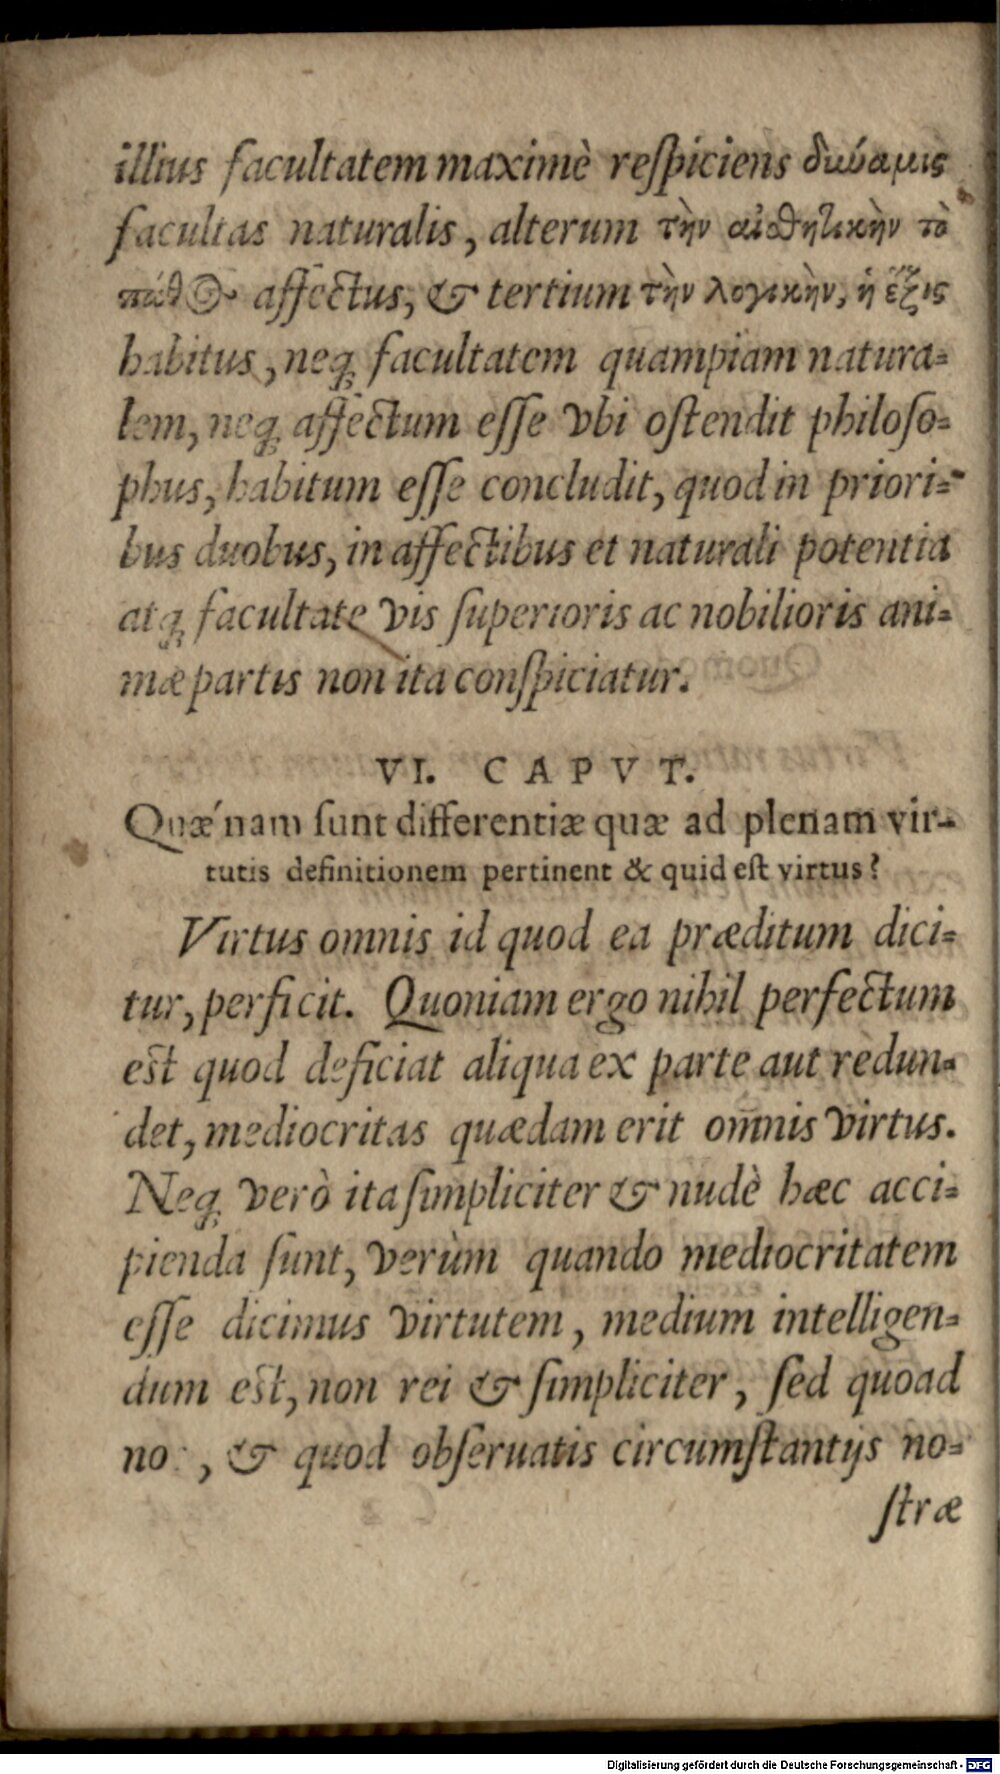 illius facultatem maximè reſpiciens δύναμις
facultas naturalis, alterum τὴν αἰσθητικὴν τὸ
πάθος affectus, & tertium τὴν λογικὴν, ἡ ἕξις
habitus, neq; facultatem quampiam natura=
lem, neq; affectum eſſe vbi oſtendit philoſo=
phus, habitum eſſe concludit, quod in priori=
bus duobus, in affectibus et naturali potentia
atq; facultate vis ſuperioris ac nobilioris ani=
mæ partis non ita conſpiciatur.
VI. CAPVT.
Quæ´nam ſunt differentiæ quæ ad plenam vir-
tutis definitionem pertinent & quid eſt virtus?
Virtus omnis id quod ea præditum dici=
tur, perficit. Quoniam ergo nihil perfectum
eſt quod deficiat aliqua ex parte aut redun=
det, mediocritas quædam erit om̄nis virtus.
Neq; verò ita ſimpliciter & nudè hæc acci=
pienda ſunt, verùm quando mediocritatem
eſſe dicimus virtutem, medium intelligen=
dum eſt, non rei & ſimpliciter, ſed quoad
no , & quod obſeruatis circumſtantijs no=
ſtræ
Digitalisierung gefördert durch die Deutsche Forschungsgemeinschaft - DFG